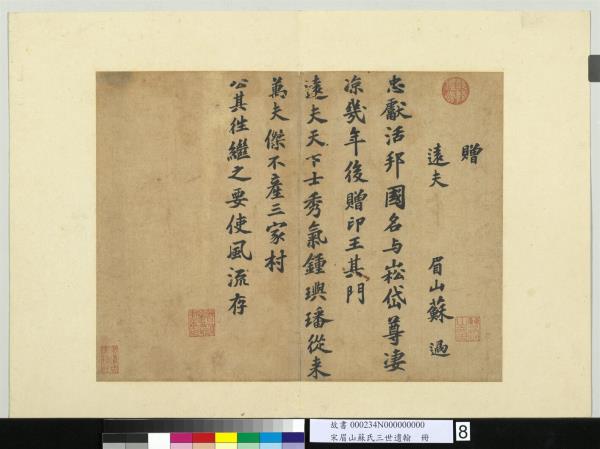 贈
遠夫　　　眉山蘇過
忠獻活邦國名与崧岱尊淒
凉幾年後贈印王其門
遠夫天下士秀氣鍾璵璠從来
萬夫傑不產三家村
公其往繼之要使風流存
故書 000234N000000000
宋眉山蘇氏三世遺翰　冊
8